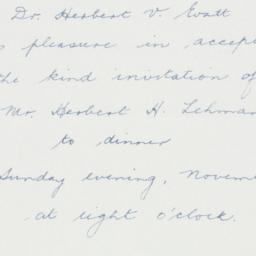 Dr. Herbert V. Evatt
pleasure in accep
the kind invitation of
Mr. Herbert H. Lehman
to dinner
Sunday evening, Novem
at eight o'clock.